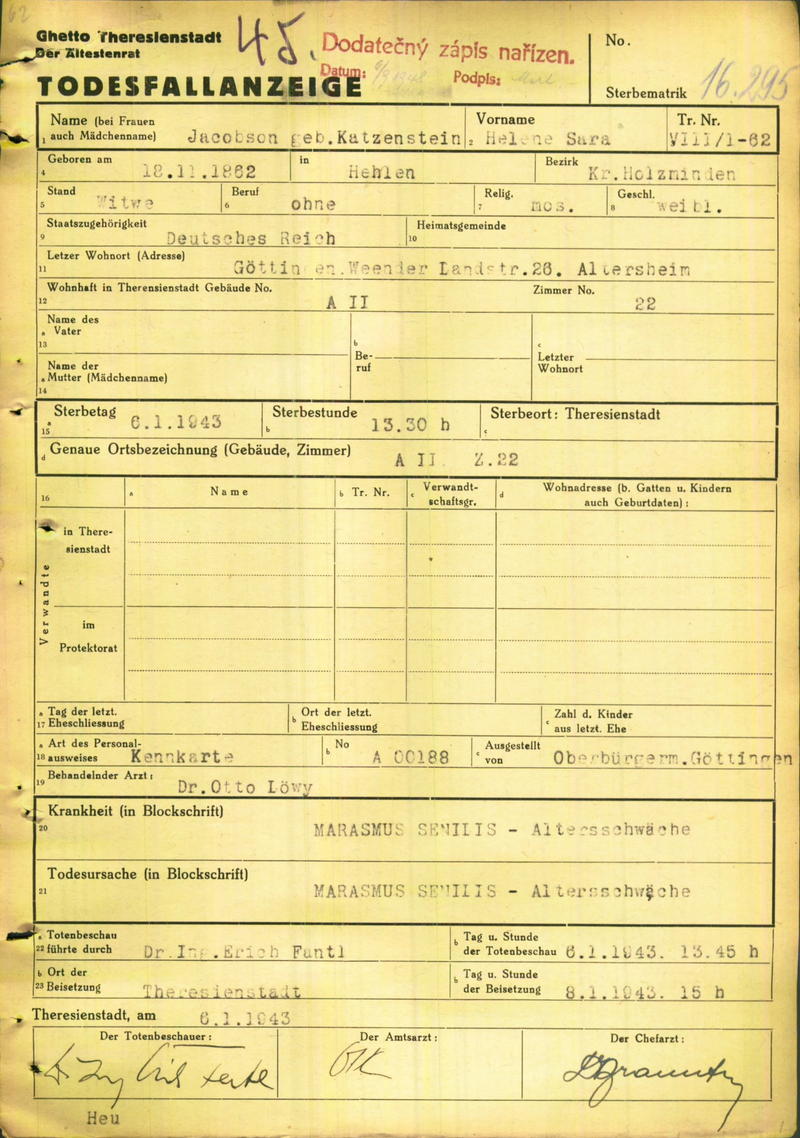 62
Ghetto Theresienstadt
Der Ältestenrat
TODESFALLANZEIGE
Dodatečný zápis nařízen.
Datum:
Podpis:
No.
Sterbematrik 16.295
Name (bei Frauen
1 auch Mädchenname) Jacobson geb.Katzenstein
2 Vorname Helene Sara
Tr. Nr. VIII/1-62
4 Geboren am 18.11.1862
in Hehlen
Bezirk Kr.Holzminden
5 Stand Witwe
6 Beruf ohne
7 Relig. mos.
8 Geschl. weibl.
9 Staatszugehörigkeit Deutsches Reich
10 Heimatsgemeinde
11 Letzer Wohnort (Adresse) Göttingen.Weender Landstr.26. Altersheim
12 Wohnhaft in Therensienstadt Gebäude No. A II
Zimmer No. 22
Name des
a Vater
13
b
Be-
ruf
c
Letzter
Wohnort
Name der
a Mutter (Mädchenname)
14
a 15 Sterbetag 6.1.1943
b Sterbestunde 13.30 h
c Sterbeort: Theresienstadt
d Genaue Ortsbezeichnung (Gebäude, Zimmer) A II. Z.22
16
a Name
b Tr. Nr.
c Verwandt-
schaftsgr.
d Wohnadresse (b. Gatten u. Kindern
auch Geburtdaten) :
Verwandte
in There-
sienstadt
im
Protektorat
a Tag der letzt.
17 Eheschliessung
b Ort der letzt.
Eheschliessung
c Zahl d. Kinder
aus letzt. Ehe
a Art des Personal-
18 ausweises Kennkarte
b No A 00188
c Ausgestellt
von Oberbürgerm.Göttingen
19 Behandelnder Arzt: Dr.Otto Löwy
Krankheit (in Blockschrift)
20 MARASMUS SENILIS - Altersschwäche
Todesursache (in Blockschrift)
21 MARASMUS SENILIS - Altersschwäche
a Totenbeschau
22 führte durch Dr.Ing.Erich Fantl
b Tag u. Stunde
der Totenbeschau 6.1.1943. 13.45 h
b Ort der
23 Beisetzung Theresienstadt
b Tag u. Stunde
der Beisetzung 8.1.1943. 15 h
Theresienstadt, am 6.1.1943
Der Totenbeschauer:
Der Amtsarzt:
Der Chefarzt:
Heu